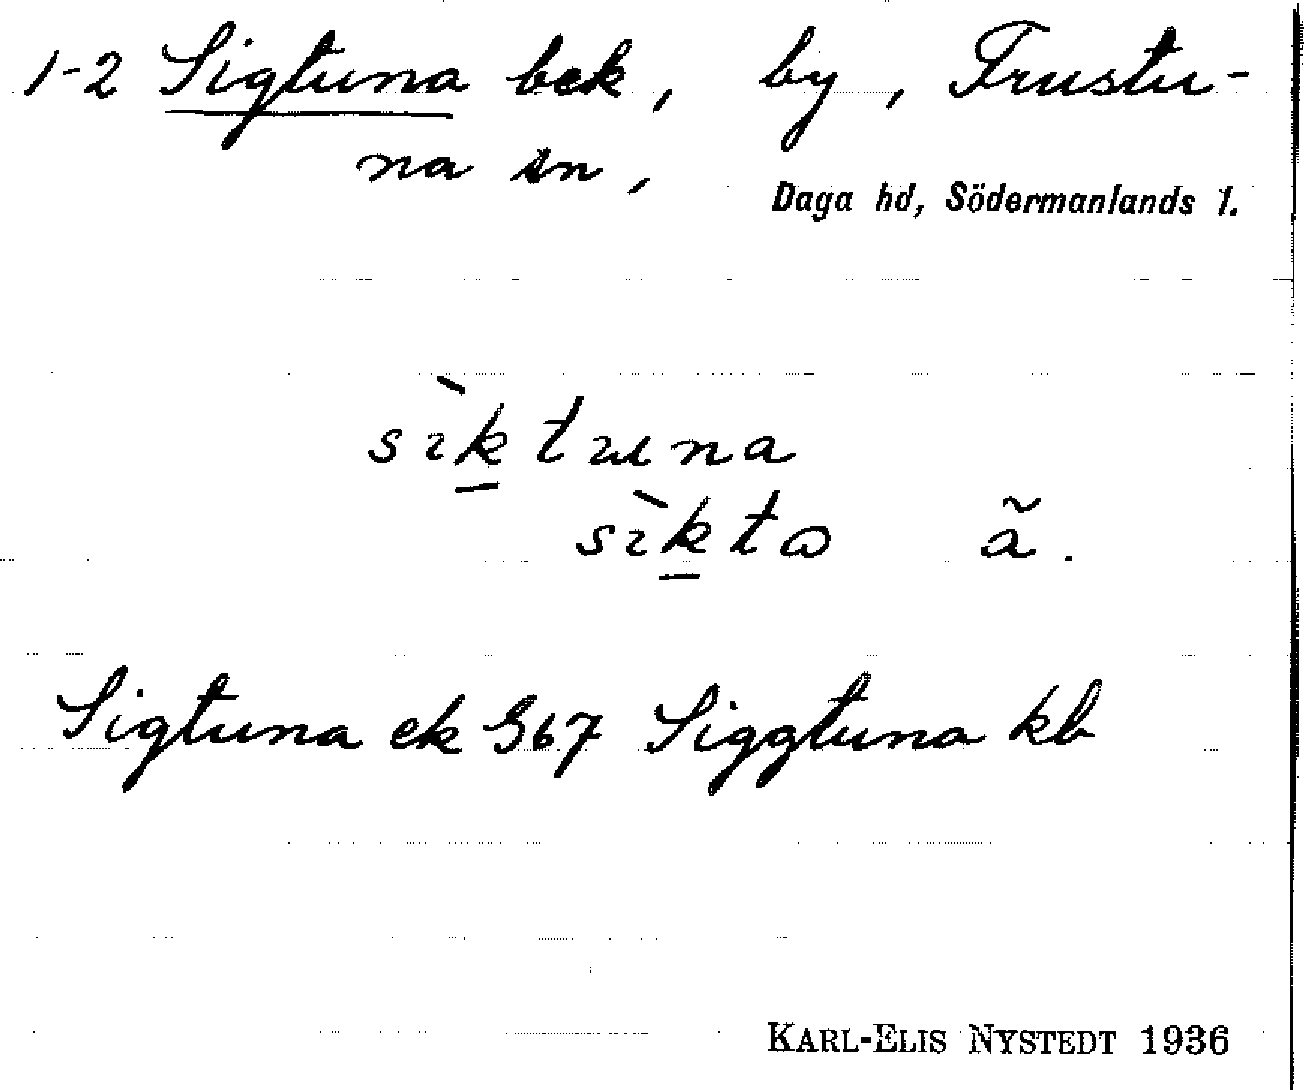 1-2 Sigtuna bek, by, Frustu-
na sn,
Daga hd, Södermanlands l.
sìktuna
sìkta ã.
Sigtuna ek G67 Siggtuna kb
KARL-ELIS NYSTEDT 1936